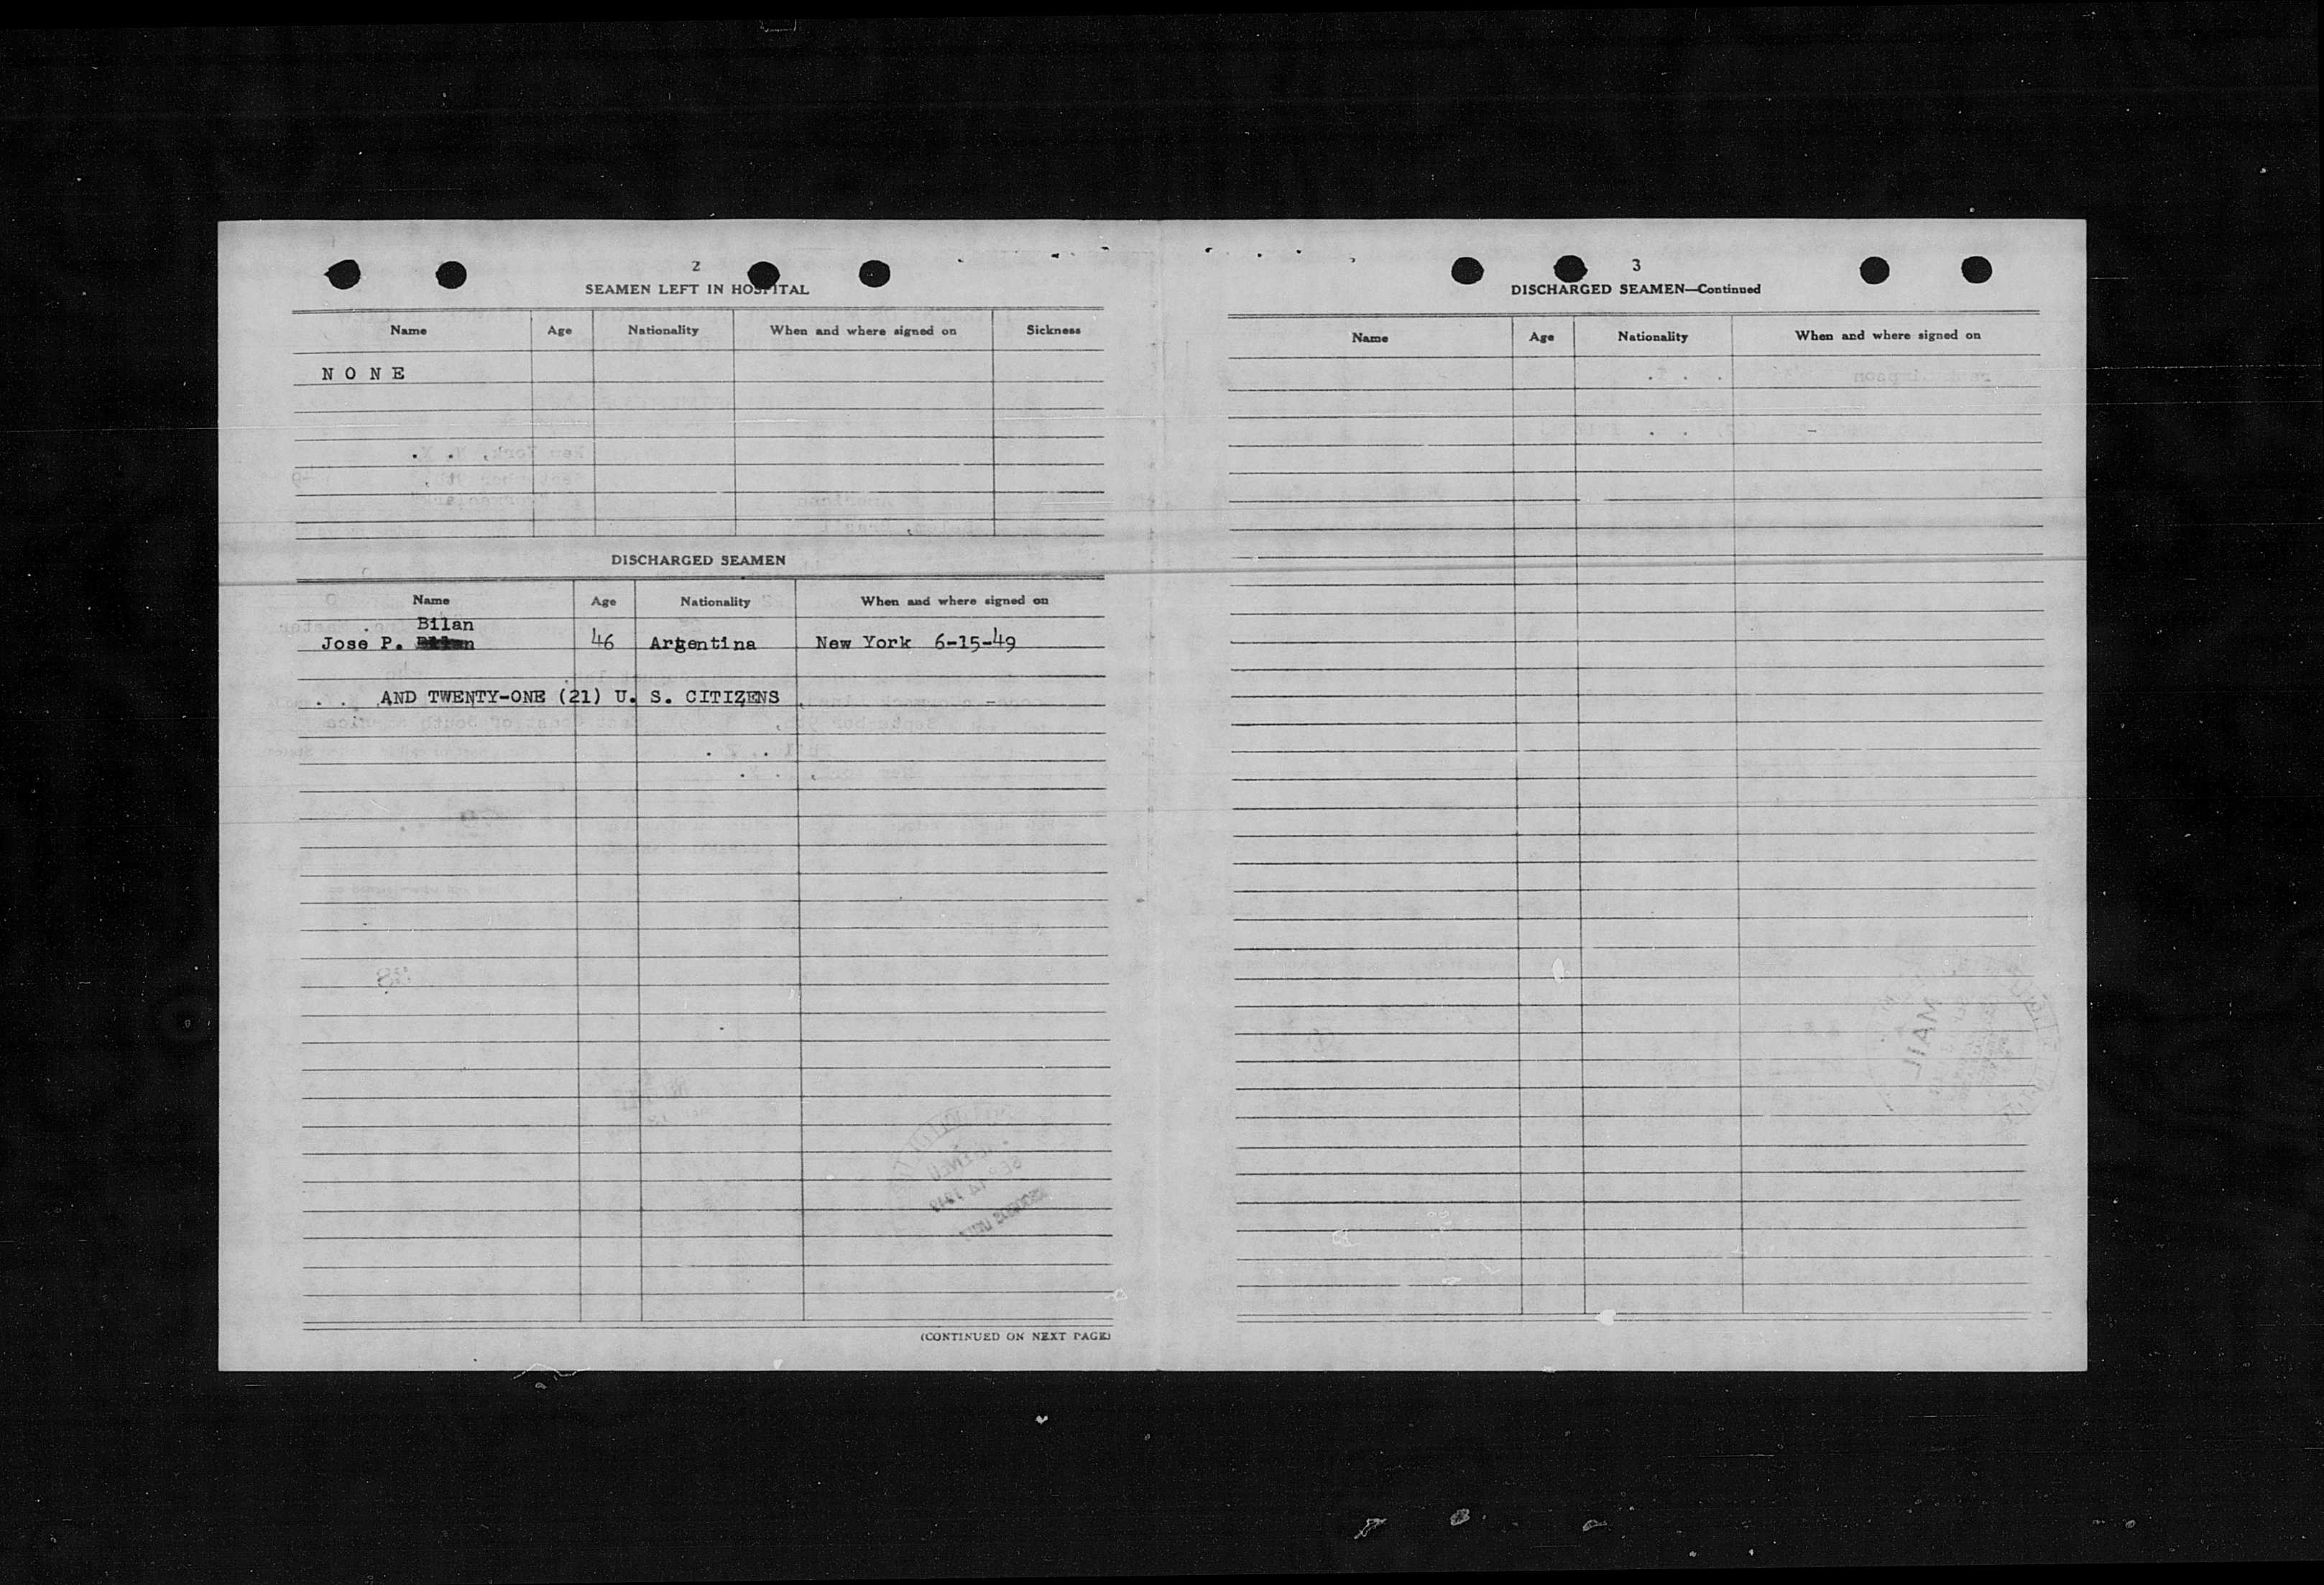 2
SEAMEN LEFT IN HOSPITAL
Name Age Nationality When and where signed on Sickness
N O N E
DISCHARGED SEAMEN
Name Age Nationality When and where signed on
Bilan
Jose P. 46 Argentina New York 6-15-49
AND TWENTY-ONE (21) U. S. CITIZENS
(CONTINUED ON NEXT PAGE)
3
DISCHARGED SEAMEN—Continued
Name Age Nationality When and where signed on